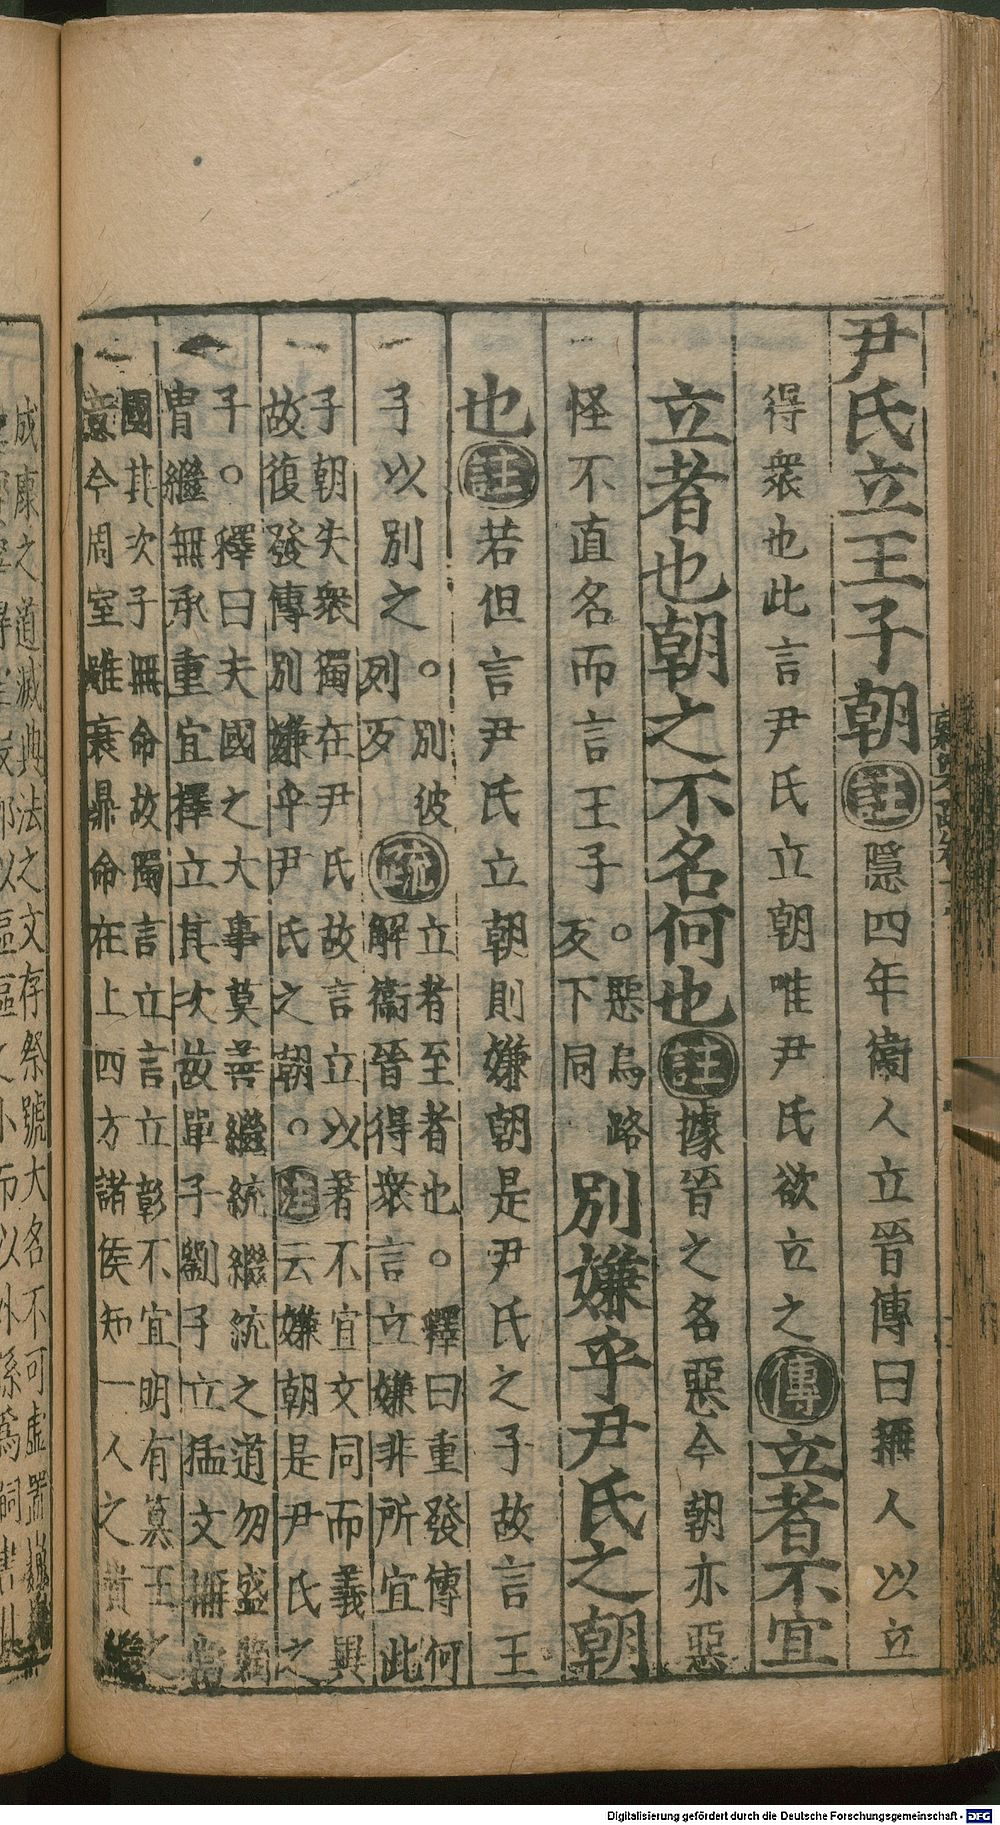 尹氏立王子朝註隱四年衛人立晉傳曰稱人以立
得衆也此言尹氏立朝唯尹氏欲立之傳立者不宜
立者也朝之不名何也註據晉之名惡今朝亦惡
怪不直名而言王子○惡烏路
反下同
別嫌乎尹氏之朝
也註若但言尹氏立朝則嫌朝是尹氏之子故言王
子以別之○別彼
列反
疏立者至者也○釋曰重發傳何
解衛晉得衆言立嫌非所宜此
子朝失衆獨在尹氏故言立以著不宜文同而義異
故復發傳別嫌乎尹氏之朝○註云嫌朝是尹氏之
子○釋曰夫國之大事莫善繼統繼統之道勿盛
胄繼無承重宜擇立其次故單子劉子立猛文稱
國其次子無命故獨言立言立彰不宜明有篡王之
意今周室雖衰鼎命在上四方諸侯知一人之貴
成康之道滅典法之文存祭號大名不可虛置
Digitalisierung gefördert durch die Deutsche Forschungsgemeinschaft - DFG